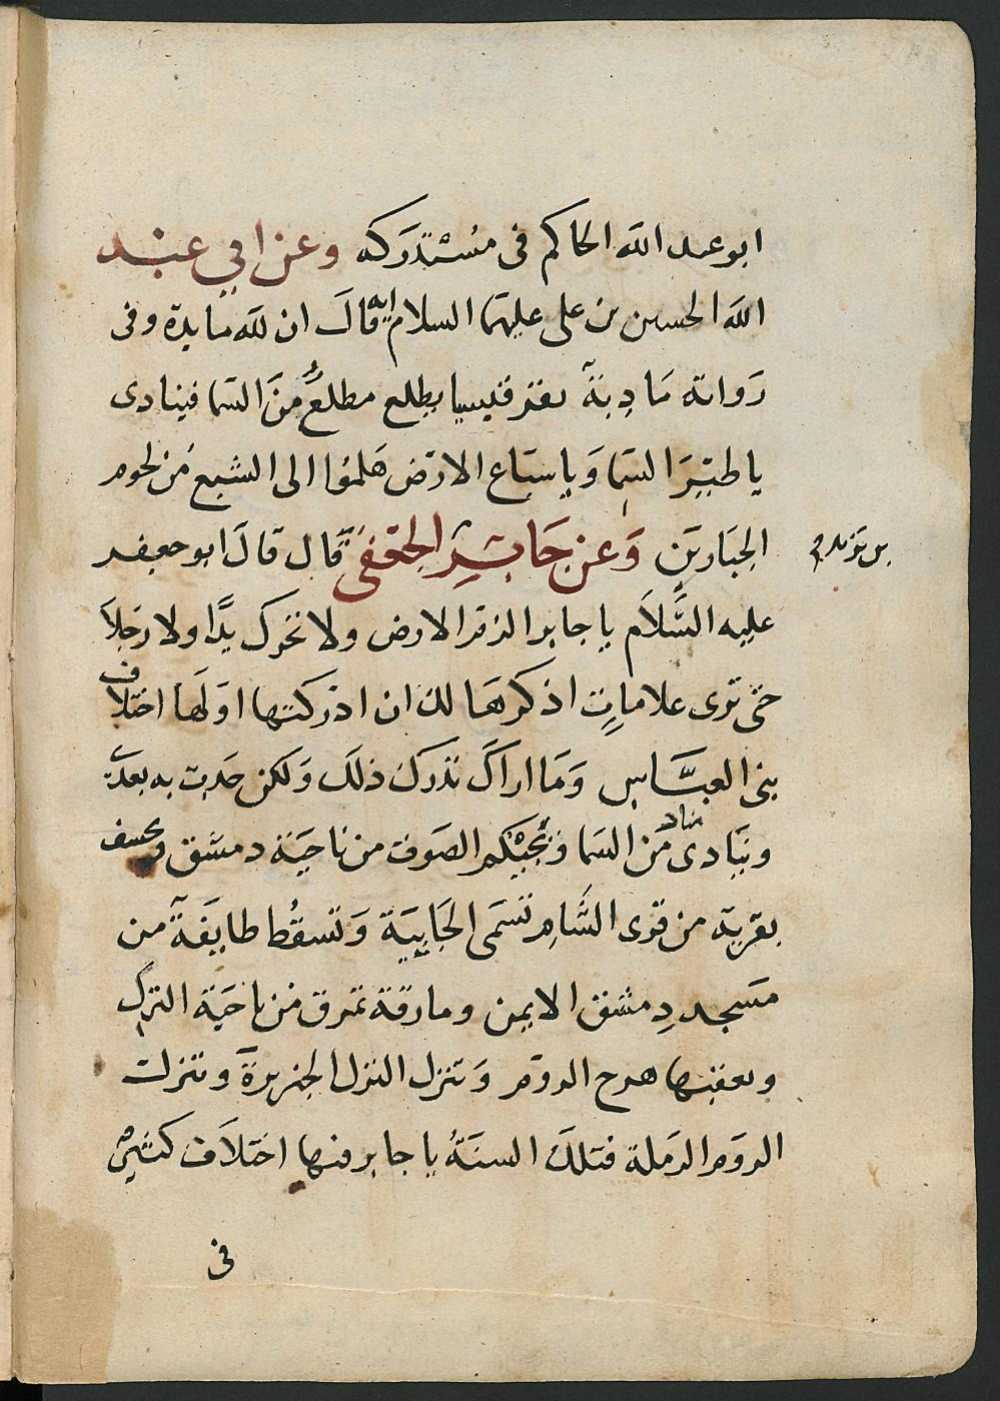 ابو عبد الله الحاكم فى مستدركه وعن ابي عبد
الله الحسين بن على عليهما السلام انه قالَ ان لله مايدة وفى
رَوايه مَادِبةً بقرقيسيا يطلع مطلعٌ منَ السَما فينادى
يا طَيرَ السَما وَيا سبَاع الارَض هَلمُوا الى الشبع من لحوم
الجبَارينَ وَعن جَابرِ الجعفى قَال قالَ ابو جعفر
بن يزيد
عليه السَّلاَم يا جابر الزمر الارض ولا تحرك يدًا ولا رجلاً
حتى ترى علامات اذكرهَا لك ان ادركتها اوَلَها اختلاف
بنى العبَّاس وَمَا اراكَ تدرك ذلكَ وَلكن حَدث به بعدى
وينَادى مناد منَ السَما ويجيكم الصَوت من ناحيَة دمشق ويخسف
بقرية من قرى الشَامِ تسَمى الجَابِيَة وَتسقُط طايفَةً من
مسَجد دِمشق الايمن ومارقة تمرق من ناحيَة الترك
ويعقبها هرج الروم وَتنزل الترك الجزيرةَ وتنزل
الروَم الرَملة فتلكَ السنَةُ يا جابر فيها اختلاَف كثير
فى